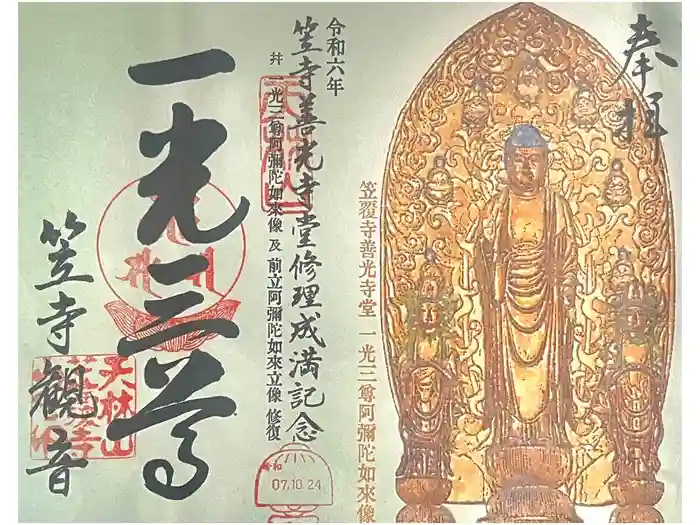 奉拝
笠覆寺善光寺堂 一光三尊阿彌陀如來像
令和六年
笠寺善光寺堂修理成満記念
并 一光三尊阿彌陀如來像 及 前立阿彌陀如來立像 修復
令和
07.10.24
一光三尊
笠寺観音
天林山